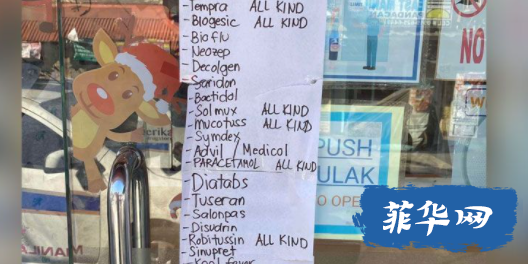 -Tempra ALL KIND
-Biogesic ALL KIND
-Bioflu
-Neozep
-Decolgen
-Saridon
-Bactidol
-Solmux ALL KIND
-Mucotuss ALL KIND
-Symdex
-Advil / Medicol
-PARACETAMOL ALL KIND
Diatabs
-Tuseran
-Salonpas
-Disudrin
-Robitussin ALL KIND
-Sinupret
-Kool fever
PANDACAN
NO
PUSH
ULAK
O OPE
MANILA
菲华网